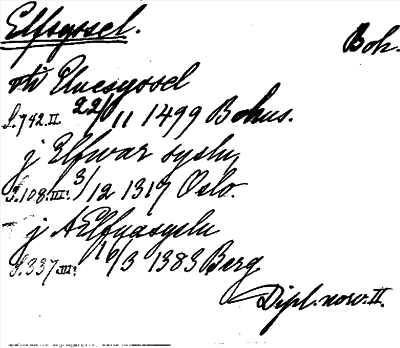 Elfsyssel. Boh.
vti Eluesyssel
S. 742. II 22/11 1499 Bohus.
j Elfwar syslu
S. 108. III. 3/12 1317 Oslo.
j AElfuasyslu
S. 337. III. 16/3 1383 Berg
Dipl. norv. II.